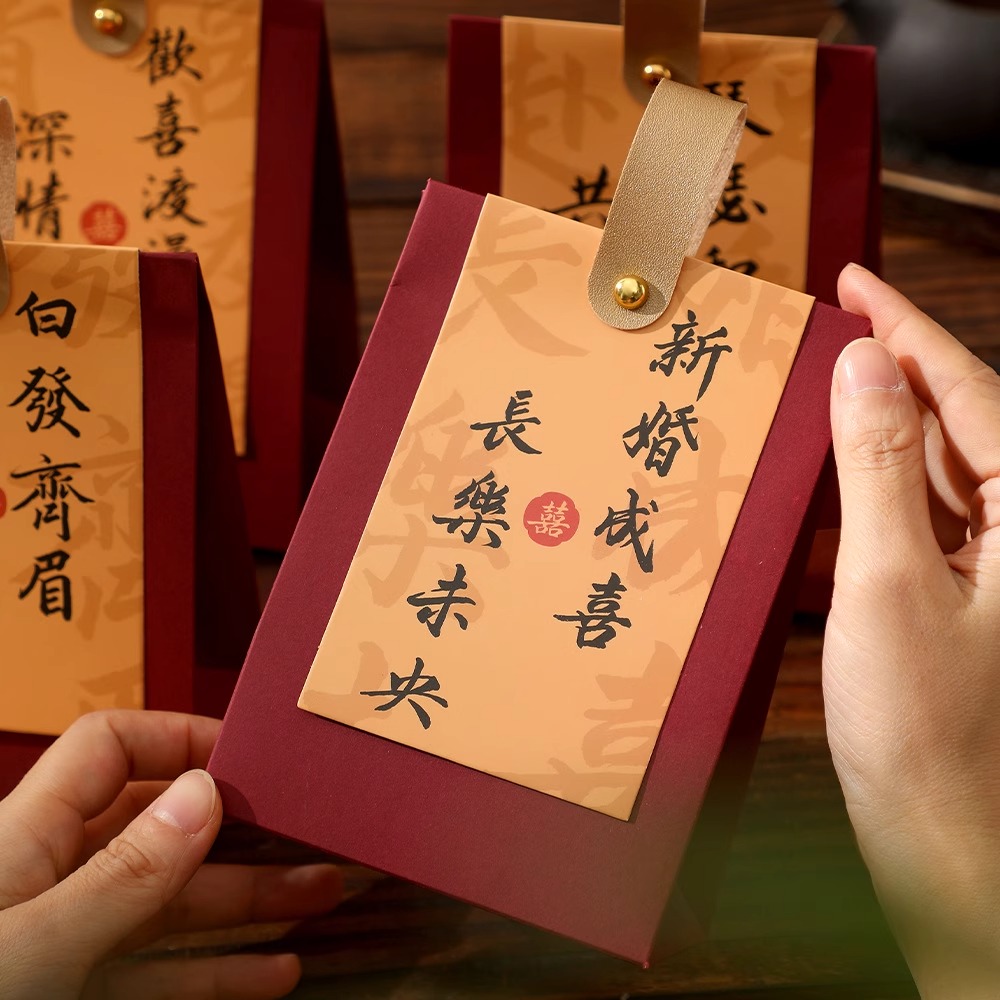 新婚成喜
長樂未央
囍
白發齊眉
歡喜渡
深情
囍